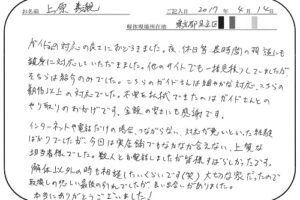 お名前 上原 義親 ご記入日 2017年4月14日
解体現場所在地 東京都足立区
ガイドの対応の良さにおどろきました。夜、休日等、長時間の相談にも
親身に対応していただきました。他のサイトでも一括見積りしていましたが
そちらは紹介のみでした。こちらのガイドさんは細やかな対応、こちらの
期待以上の対応でした。不安も払拭できましたのはガイドさんとの
やり取りのおかげです、金額の安さにも感謝です。
インターネットや電話だけの場合、つながらない、対応が悪いといった経験
ばかりでしたが、今回は実店舗でもなかなか会えない、上質な
担当者様でした。数人とも電話しましたが皆様すばらしかったです。
解体以外の時も相談したいくらいです(笑) 大切な家だったので
取壊しの悲しい最後の別れでしたが、良い出会いがありました。
本当にありがとうございました！